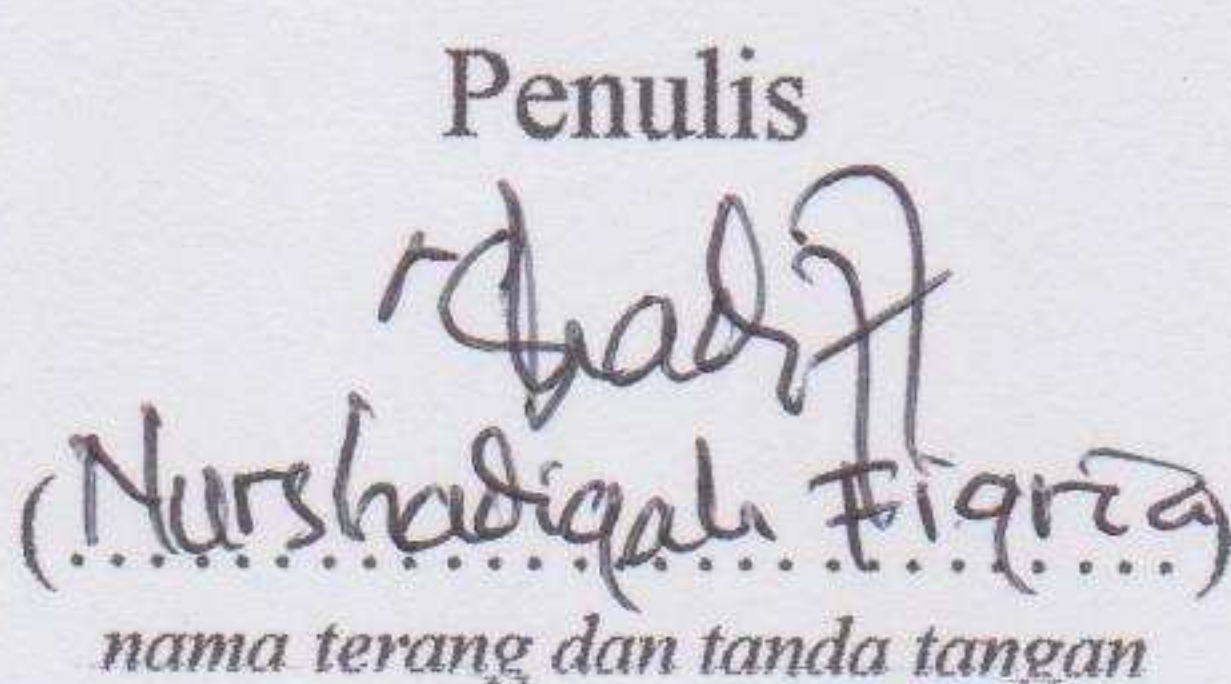 Penulis
(Nurshadiqah Fiqria)
nama terang dan tanda tangan